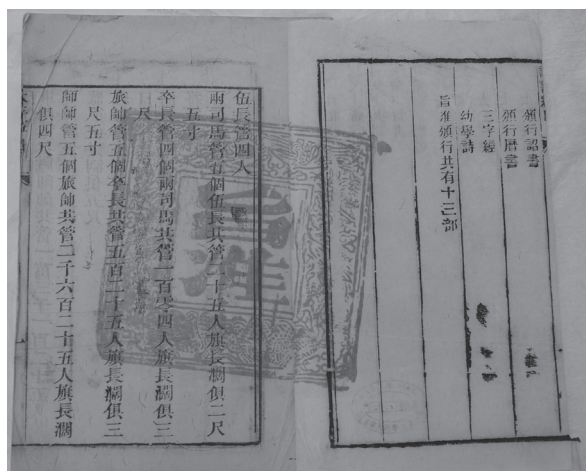 頒行詔書
頒行曆書
三字經
幼學詩
旨准頒行共有十三部
旨准
伍長管四人
兩司馬管五個伍長共管二十五人旗長濶俱二尺
五寸
卒長管四個兩司馬共管一百零四人旗長濶俱三
尺
旅師管五個卒長共管五百二十五人旗長濶俱三
尺五寸
師帥管五個旅帥共管二千六百二十五人旗長濶
俱四尺